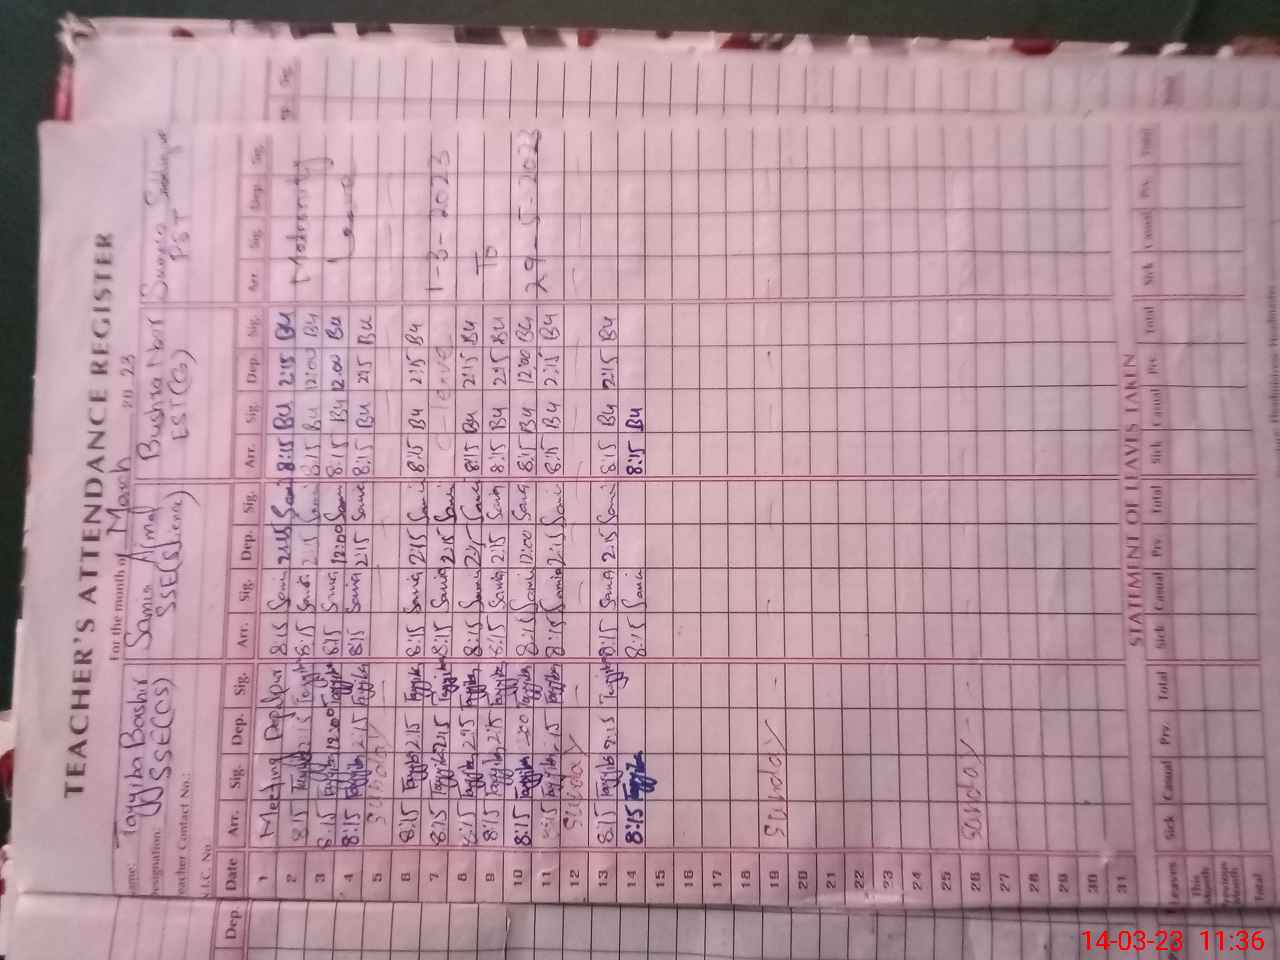 TEACHER'S ATTENDANCE REGISTER
For the month of March 20 23
Name: Tayyiba Bashir Samia Ajmal Bushra Noor Sumaira Siddique
Designation: SSE(CS) SSE(Science) EST(G) PST
Teacher Contact No.:
N.I.C. No.
Dep. Date Arr. Sig. Dep. Sig. Arr. Sig. Dep. Sig. Arr. Sig. Dep. Sig. Arr. Sig. Dep. Sig.
1 Meeting 8:15 Samia 2:15 Samia 8:15 Bu 2:15 Bu Maternity
2 8:15 Tayyiba 2:15 Tayyiba 8:15 Samia 2:15 Samia 8:15 Bu 12:00 Bu Leave
3 8:15 Tayyiba 12:00 Tayyiba 8:15 Samia 12:00 Samia 8:15 Bu 12:00 Bu
4 8:15 Tayyiba 2:15 Tayyiba 8:15 Samia 2:15 Samia 8:15 Bu 2:15 Bu
5 Sunday
6 8:15 Tayyiba 2:15 Tayyiba 8:15 Samia 2:15 Samia 8:15 Bu 2:15 Bu 1-3-2023
7 8:15 Tayyiba 2:15 Tayyiba 8:15 Samia 2:15 Samia C-leave
8 8:15 Tayyiba 2:15 Tayyiba 8:15 Samia 2:15 Samia 8:15 Bu 2:15 Bu To
9 8:15 Tayyiba 2:15 Tayyiba 8:15 Samia 2:15 Samia 8:15 Bu 2:15 Bu
10 8:15 Tayyiba Tayyiba 8:15 Samia 12:00 Samia 8:15 Bu 12:00 Bu 29-5-2023
11 8:15 Tayyiba 2:15 Tayyiba 8:15 Samia 2:15 Samia 8:15 Bu 2:15 Bu
12 Sunday
13 8:15 Tayyiba 2:15 Tayyiba 8:15 Samia 2:15 Samia 8:15 Bu 2:15 Bu
14 8:15 Tayyiba 8:15 Samia 8:15 Bu
15
16
17
18
19 Sunday
20
21
22
23
24
25
26 Sunday
27
28
29
30
31
STATEMENT OF LEAVES TAKEN
Leaves Sick Casual Prv. Total Sick Casual Prv. Total Sick Casual Prv. Total Sick Casual Prv. Total
This Month
Previous Month
Total
14-03-23 11:36